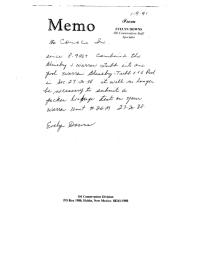 1-9-91
Memo
From
EVELYN DOWNS
Oil Conservation Staff
Specialist
To Conoco Inc
since R-9467 combined the
Blinebry & Warren Tubb into one
pool Warren Blinebry-Tubb O & G Pool
in Sec 27-20-38 it will no longer
be necessary to submit a
packer leakage test on your
Warren Unit # 26 27-20-38
Evelyn Downs
Oil Conservation Division
PO Box 1980, Hobbs, New Mexico 88241-1980